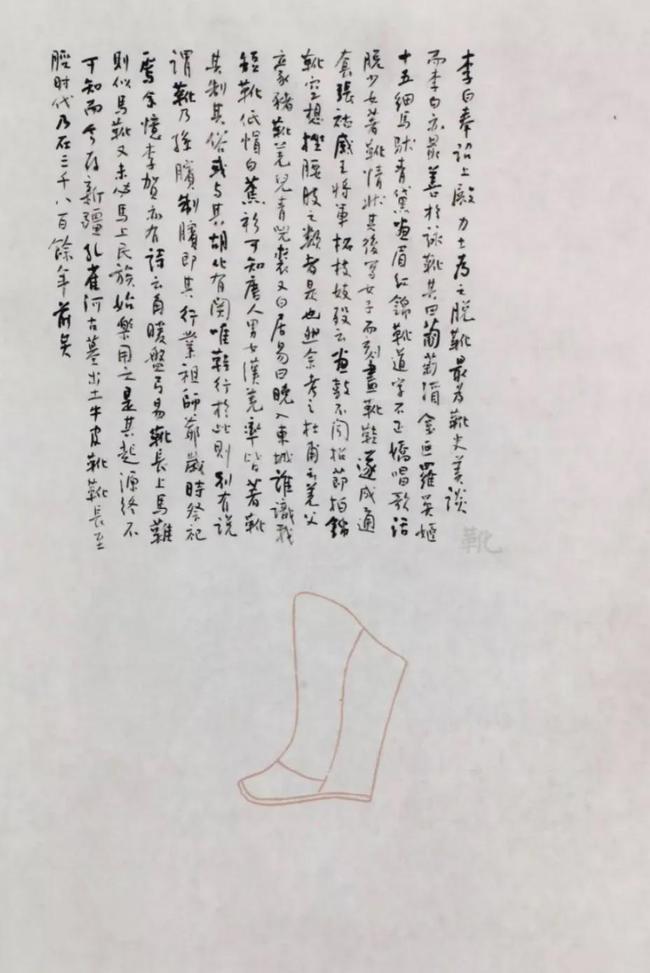 李白奉詔上殿力士為之脫靴最為靴史美談
而李白亦最善於詠靴其曰葡萄酒金叵羅吳姬
十五細馬馱青黛畫眉紅錦靴道字不正嬌唱歌活
脫少女著靴情狀其後寫女子而刻畫靴鞋遂成通
套張祜感王將軍柘枝妓歿云畫鼓不聞招節拍錦
靴空想挫腰肢之類者是也然余考之杜甫云羌父
豪豬靴羌兒青兕裘又白居易曰晚入東城誰識我
短靴低帽白蕉衫可知唐人男女漢羌率皆著靴
其制其俗或与其胡化有関唯鞋行於此則別有說
謂靴乃孫臏制臏即其行業祖師爺歲時祭祀
焉余憶李賀亦有詩云角暖盤弓易靴長上馬難
則似馬靴又未必馬上民族始樂用之是其起源終不
可知而今存新疆孔雀河古墓出土牛皮靴靴長至
脛时代乃在三千八百餘年前矣
靴